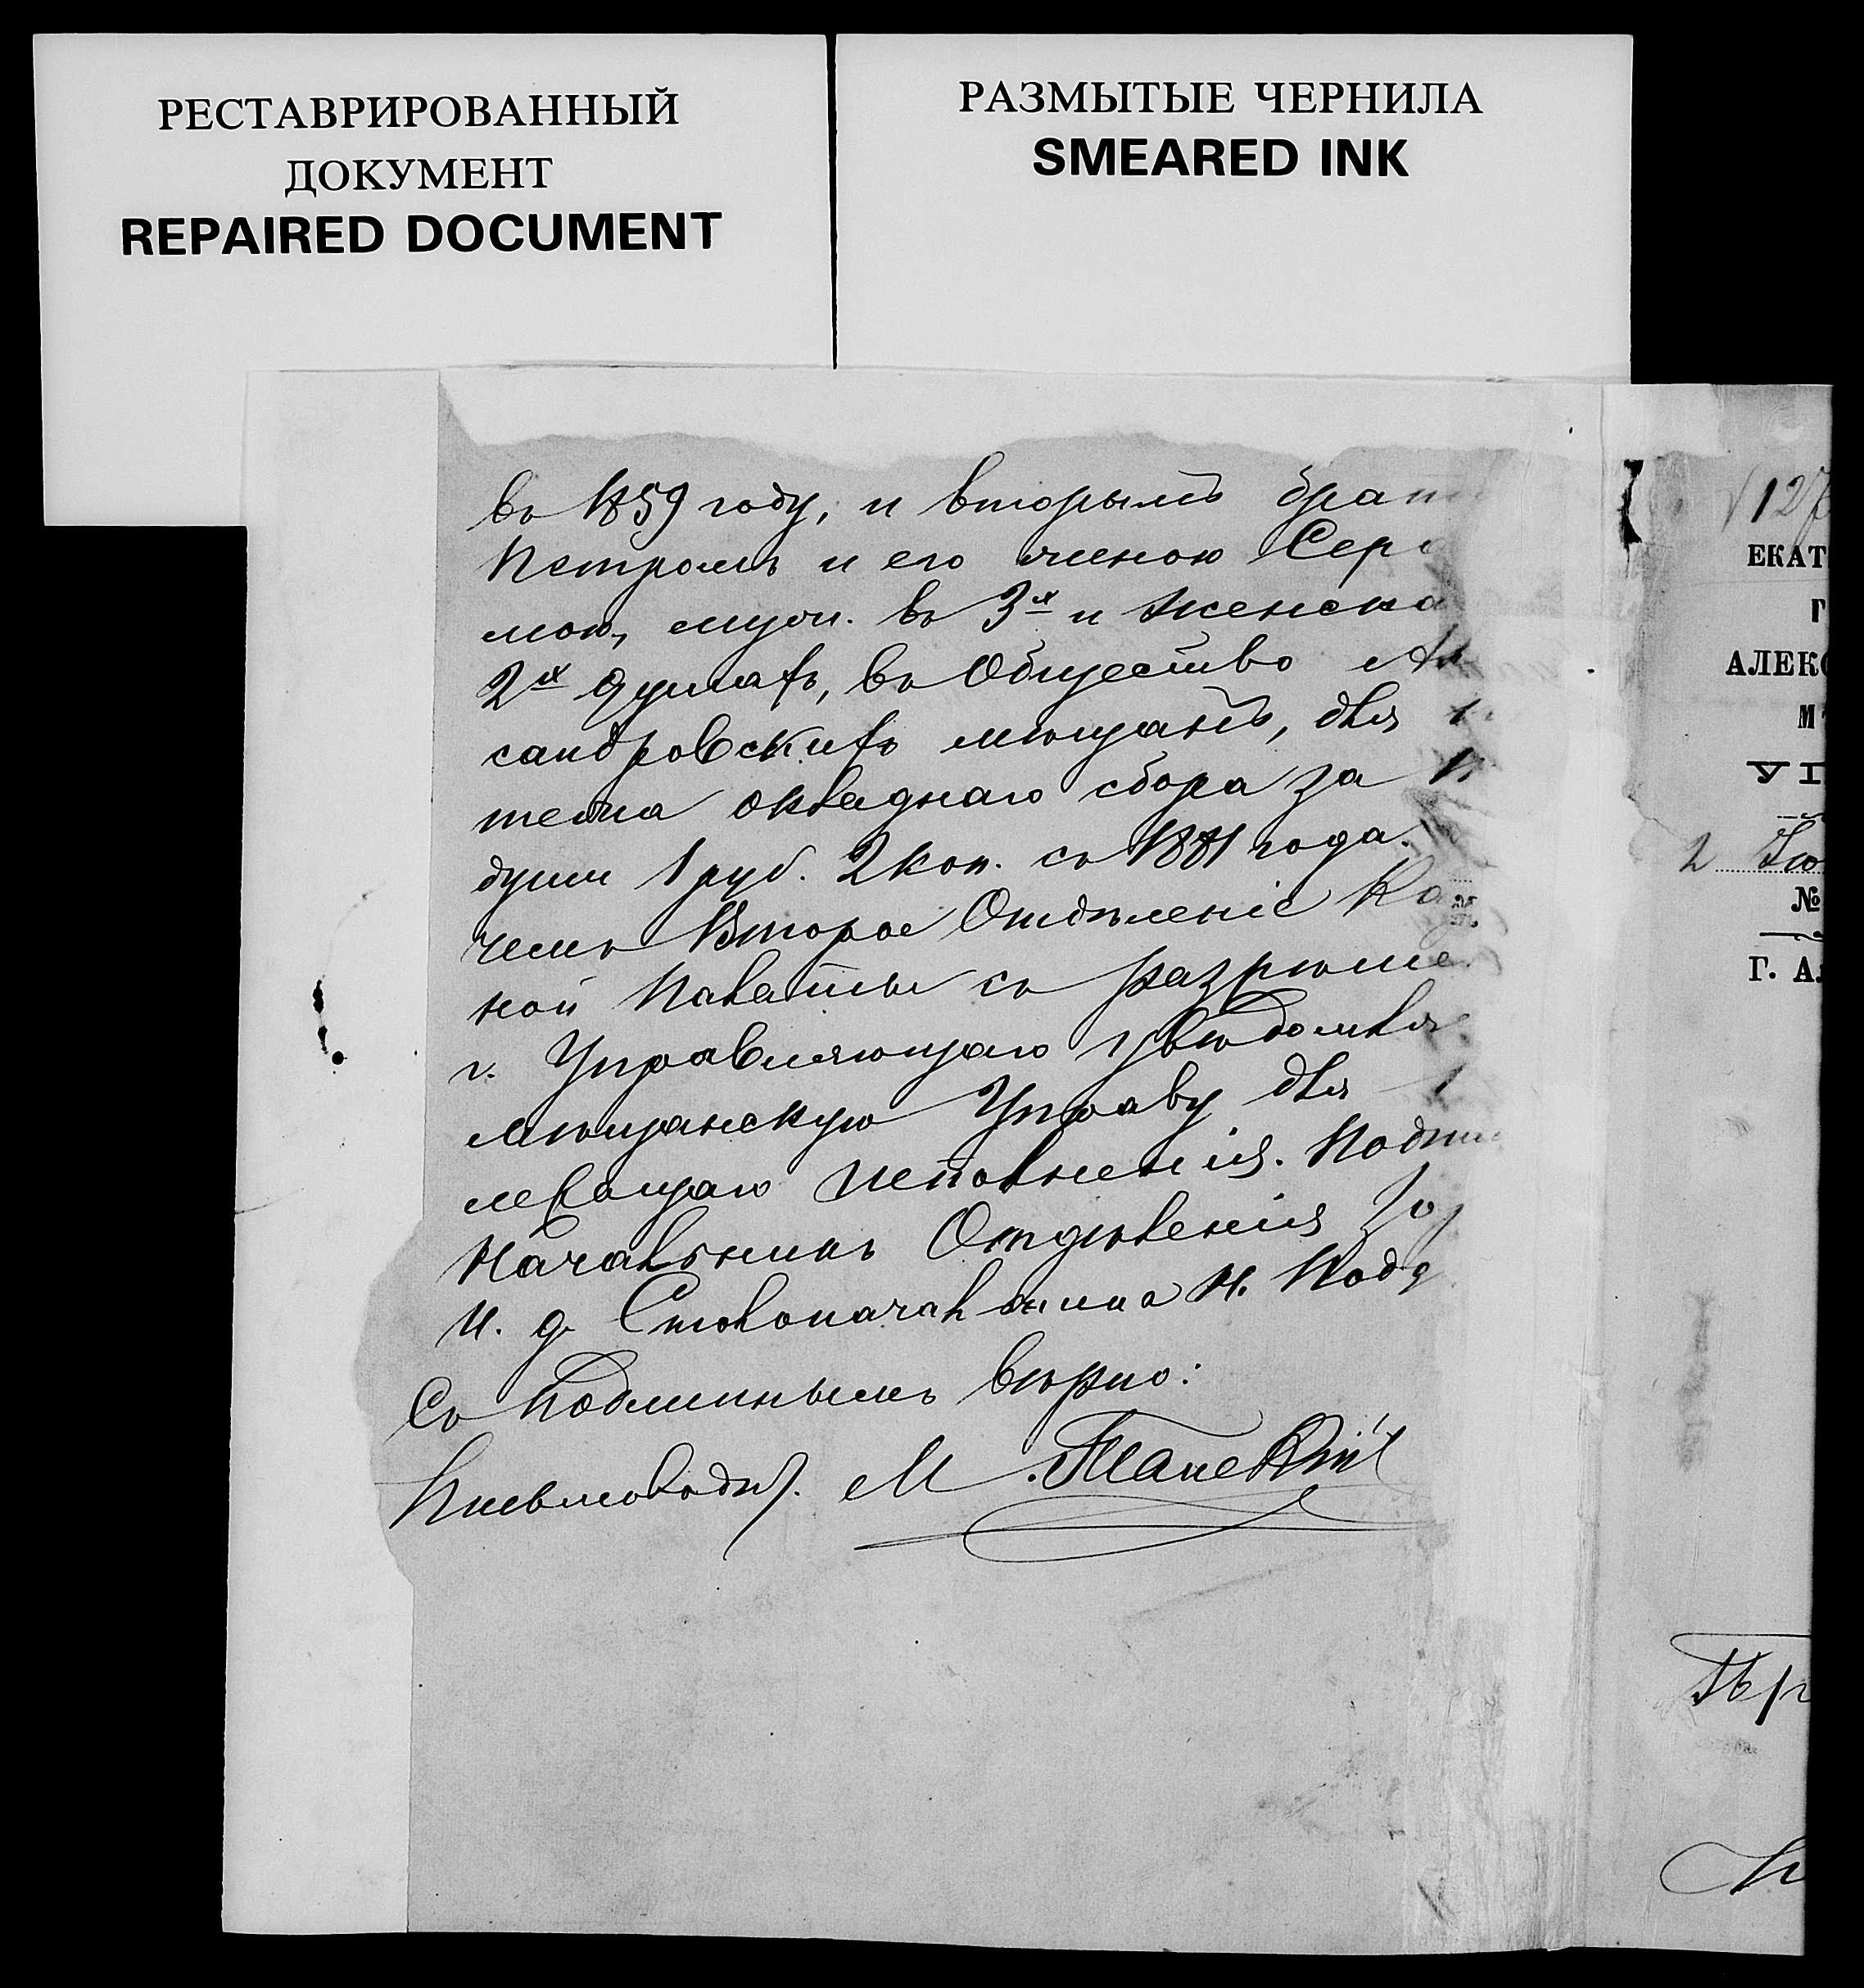 РЕСТАВРИРОВАННЫЙ
ДОКУМЕНТ
REPAIRED DOCUMENT
РАЗМЫТЫЕ ЧЕРНИЛА
SMEARED INK
въ 1859 году, и вторымъ брат
Петромъ и его женою Сер
мою, муж. въ 3х и женска
2х душахъ, въ Общество Ал
сандровскихъ мѣщанъ, для
тежа окладнаго сбора за
души 1 руб. 2 коп. съ 1881 года.
чемъ Второе Отдѣленіе Каз
ной Палаты съ разрѣше
г. Управляющаго увѣдомля
Мѣщанскую Управу для
лежащаго исполненія. Подпи
Начальникъ Отдѣленія
И. д. Столоначальника Н.
Съ подлиннымъ вѣрно:
Письмоводит. М.
127
ЕКАТ
Г
АЛЕКС
М
VI
2 Ію
№
Г. АЛ